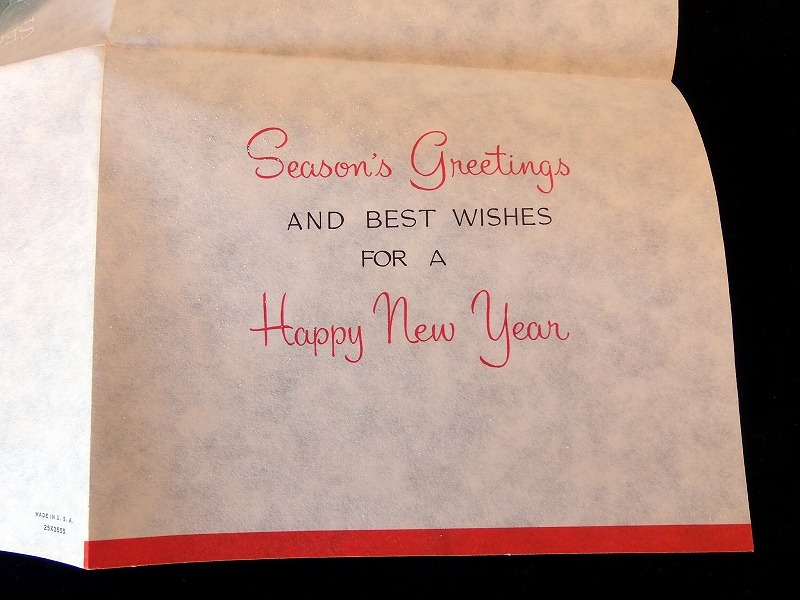 Season's Greetings
AND BEST WISHES
FOR A
Happy New Year
MADE IN U. S. A.
25X3555